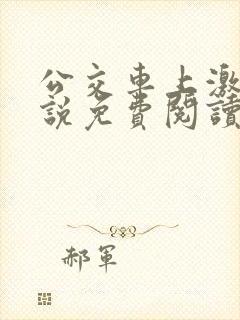 公交車上激
說免費閱讀
郝軍